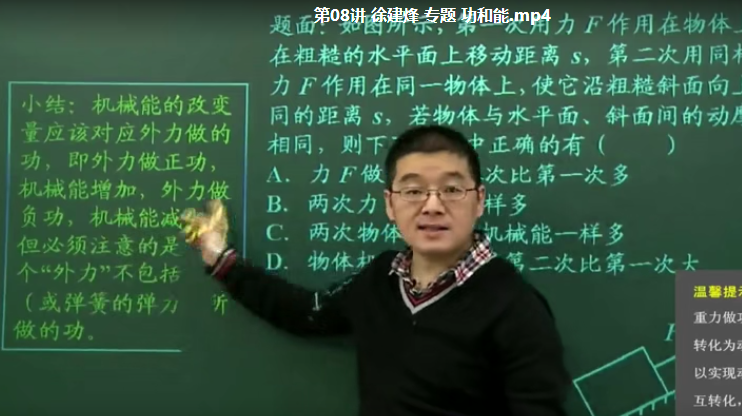 第08讲 徐建烽 专题 功和能.mp4
题面：如图所示，第一次用力 F 作用在物体
在粗糙的水平面上移动距离 s，第二次用同
力 F 作用在同一物体上，使它沿粗糙斜面向
同的距离 s，若物体与水平面、斜面间的动
相同，则下 中正确的有（ ）
A. 力 F 做 次比第一次多
B. 两次力 样多
C. 两次物体 机械能一样多
D. 物体机 第二次比第一次大
小结：机械能的改变
量应该对应外力做的
功，即外力做正功，
机械能增加，外力做
负功，机械能减
但必须注意的是
个“外力”不包括
（或弹簧的弹力 所
做的功。
F
温馨提
重力做
转化为
以实现
互转化，